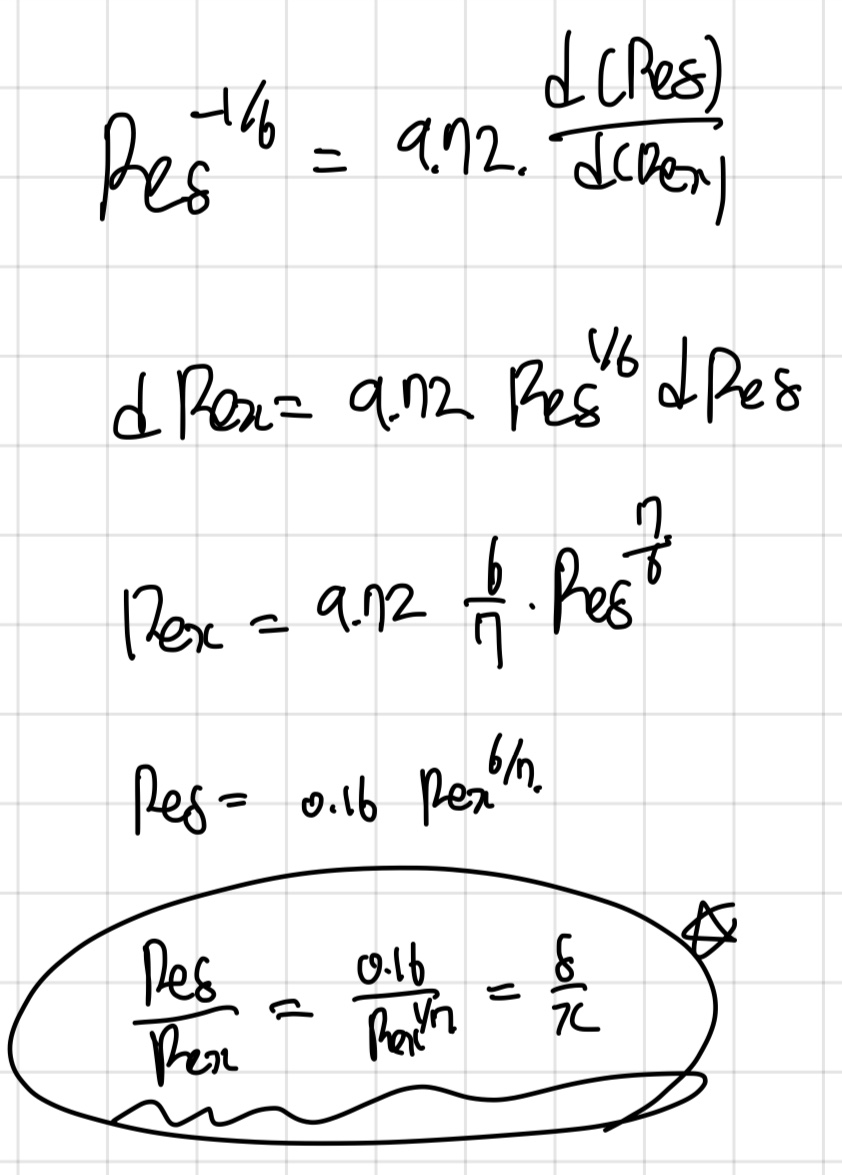 Reδ^-1/6 = 9.72. d(Reδ)/d(Rex)
dRex = 9.72 Reδ^1/6 dReδ
Rex = 9.72 6/7 · Reδ^7/6
Reδ = 0.16 Rex^6/7.
Reδ/Rex = 0.16/Rex^1/7 = δ/x